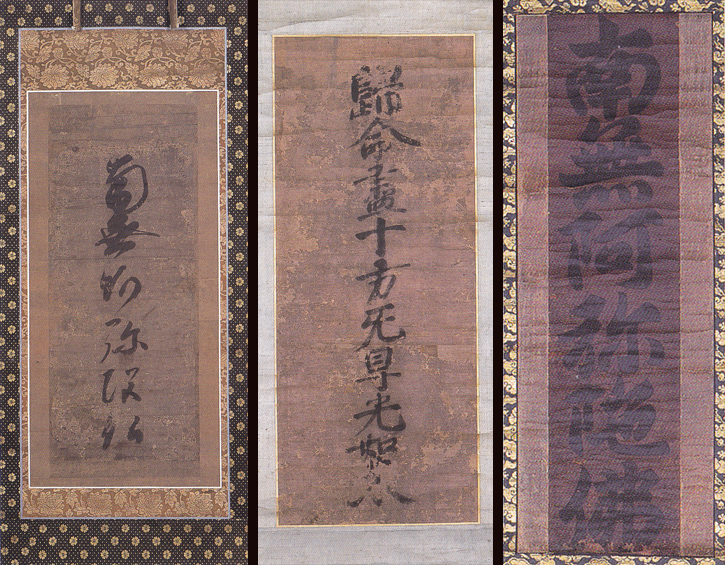 南無阿弥陀仏
歸命盡十方无㝵光如来
南無阿弥陀佛